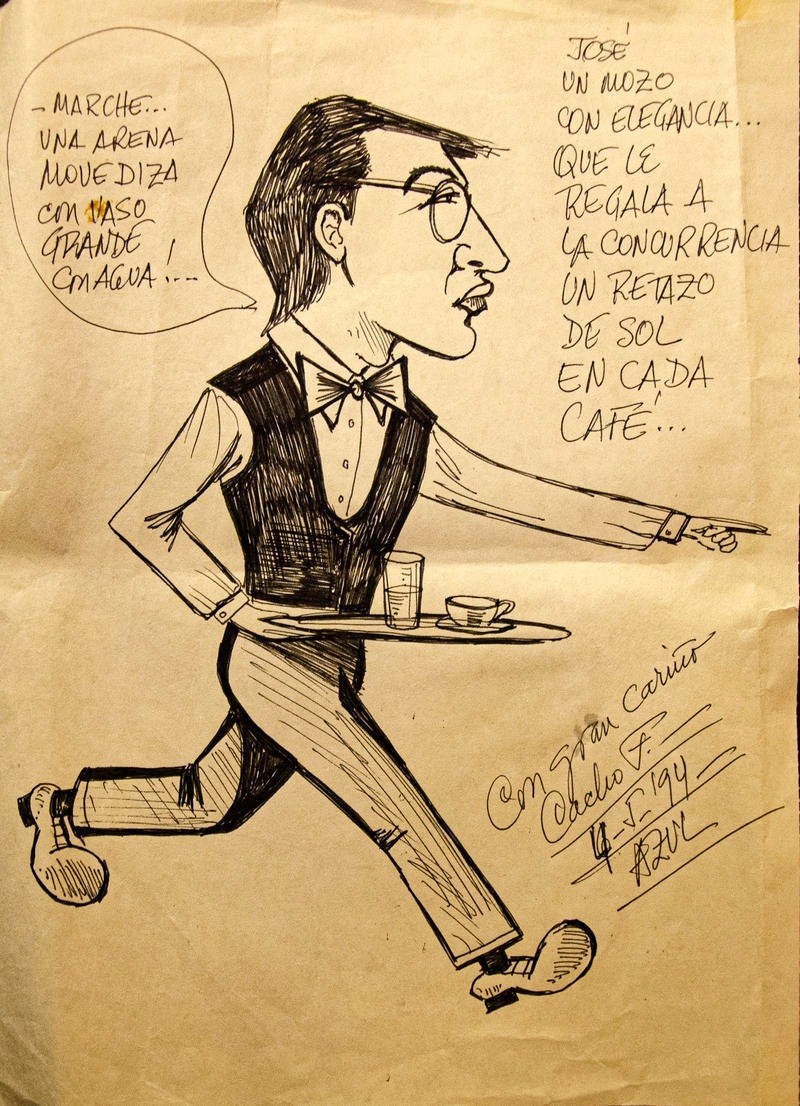 - MARCHE...
UNA ARENA
MOVEDIZA
CON VASO
GRANDE
CON AGUA!...
JOSÉ
UN MOZO
CON ELEGANCIA...
QUE LE
REGALA A
LA CONCURRENCIA
UN RETAZO
DE SOL
EN CADA
CAFÉ...
Con gran cariño
Cacho F.
4-I-'94
AZUL